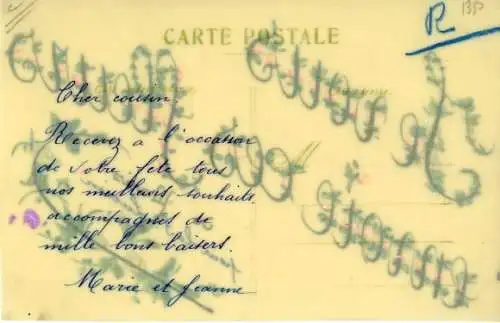 CARTE POSTALE
R
Cher cousin.
Recevez a l'occasion
de votre fête tous
nos meilleurs souhaits.
accompagnés de
mille bons baisers.
Marie et Jeanne